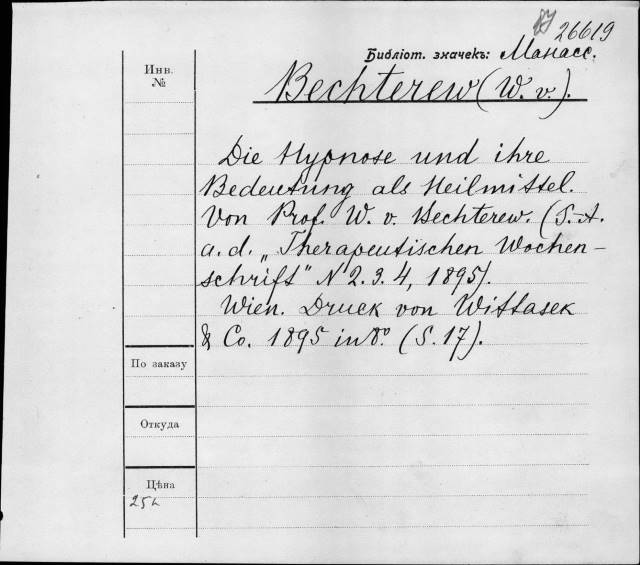 26619
Библіот. значекъ: Манасс.
Инв.
№
Bechterew (W. v.).
Die Hypnose und ihre
Bedeutung als Heilmittel.
Von Prof. W. v. Bechterew. (S. A.
a. d. „Therapeutischen Wochen-
schrift" N 2. 3. 4, 1895).
Wien. Druck von Wittasek
& Co. 1895 in 8º. (S. 17).
По заказу
Откуда
Цѣна
25